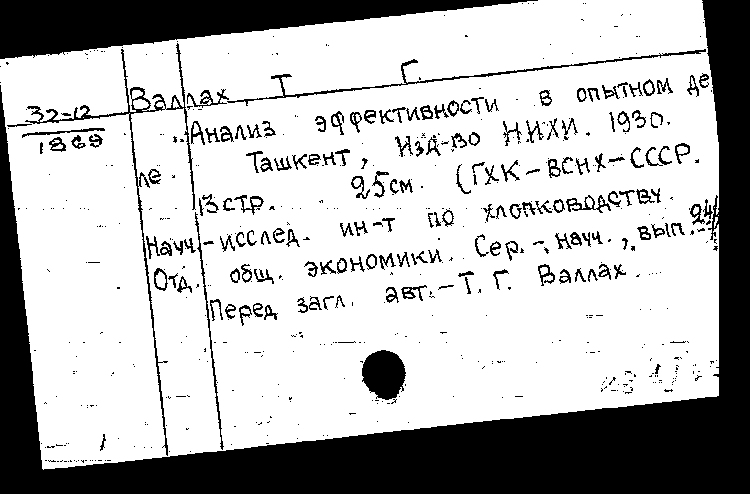 32-12
1869
Валлах, Т. Г.
Анализ эффективности в опытном де
ле. Ташкент, Изд-во НИХИ. 1930.
13 стр. 25см. (ГХК-ВСНХ-СССР.
Науч.-исслед. ин-т по хлопководству.
Отд. общ. экономики. Сер.-науч., вып.
Перед загл. авт.-Т. Г. Валлах.